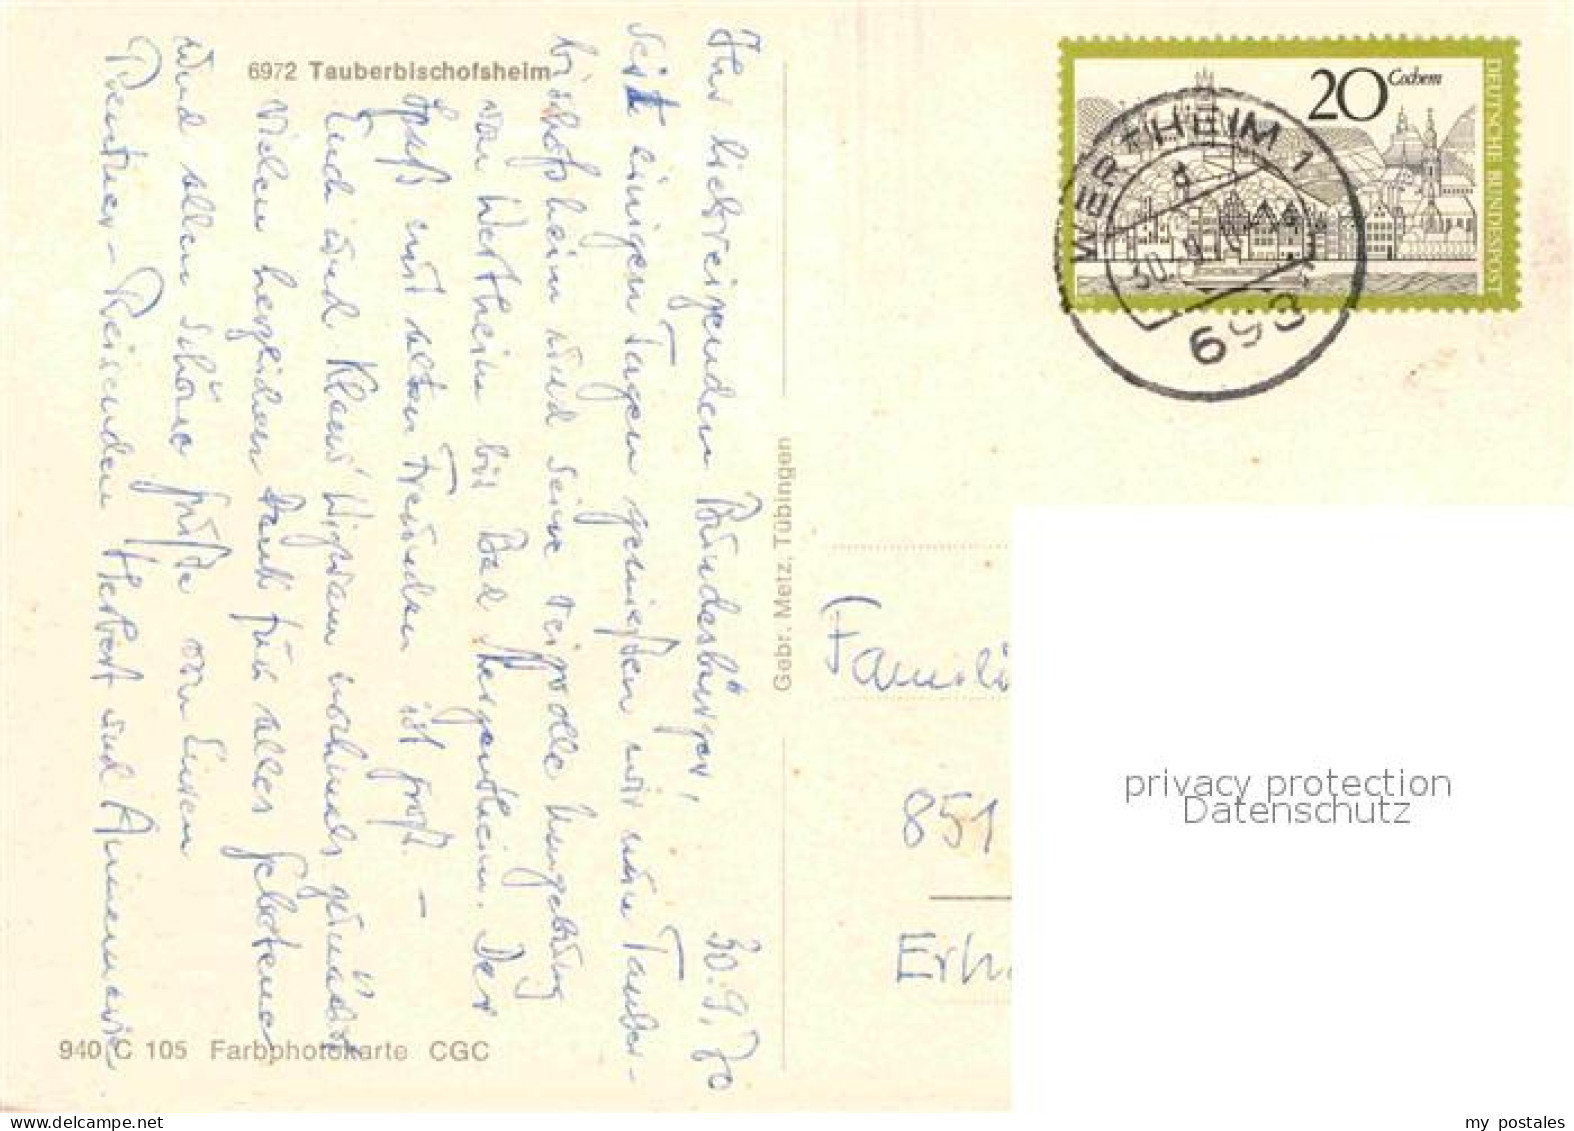 6972 Tauberbischofsheim
30.9.70
Ihr liebreizenden Bundesbürger!
Seit einigen Tagen genießen wir nun Tauber-
bischofsheim und seine reizvolle Umgebung
von Wertheim bis Bad Mergentheim. Der
Spaß mit alten Freunden ist groß. –
Euch und Klaus' Wigwam nochmals zunächst
vielen herzlichen Dank für alles Gebotene
und allem schöne Grüße von Euren
Rentner-Reisenden Herbert und Annemarie
940 C 105 Farbphotokarte CGC
Gebr. Metz, Tübingen
20 Cochem
DEUTSCHE BUNDESPOST
WERTHEIM 1
d
693
Famili
851
Erh
privacy protection
Datenschutz
my postales